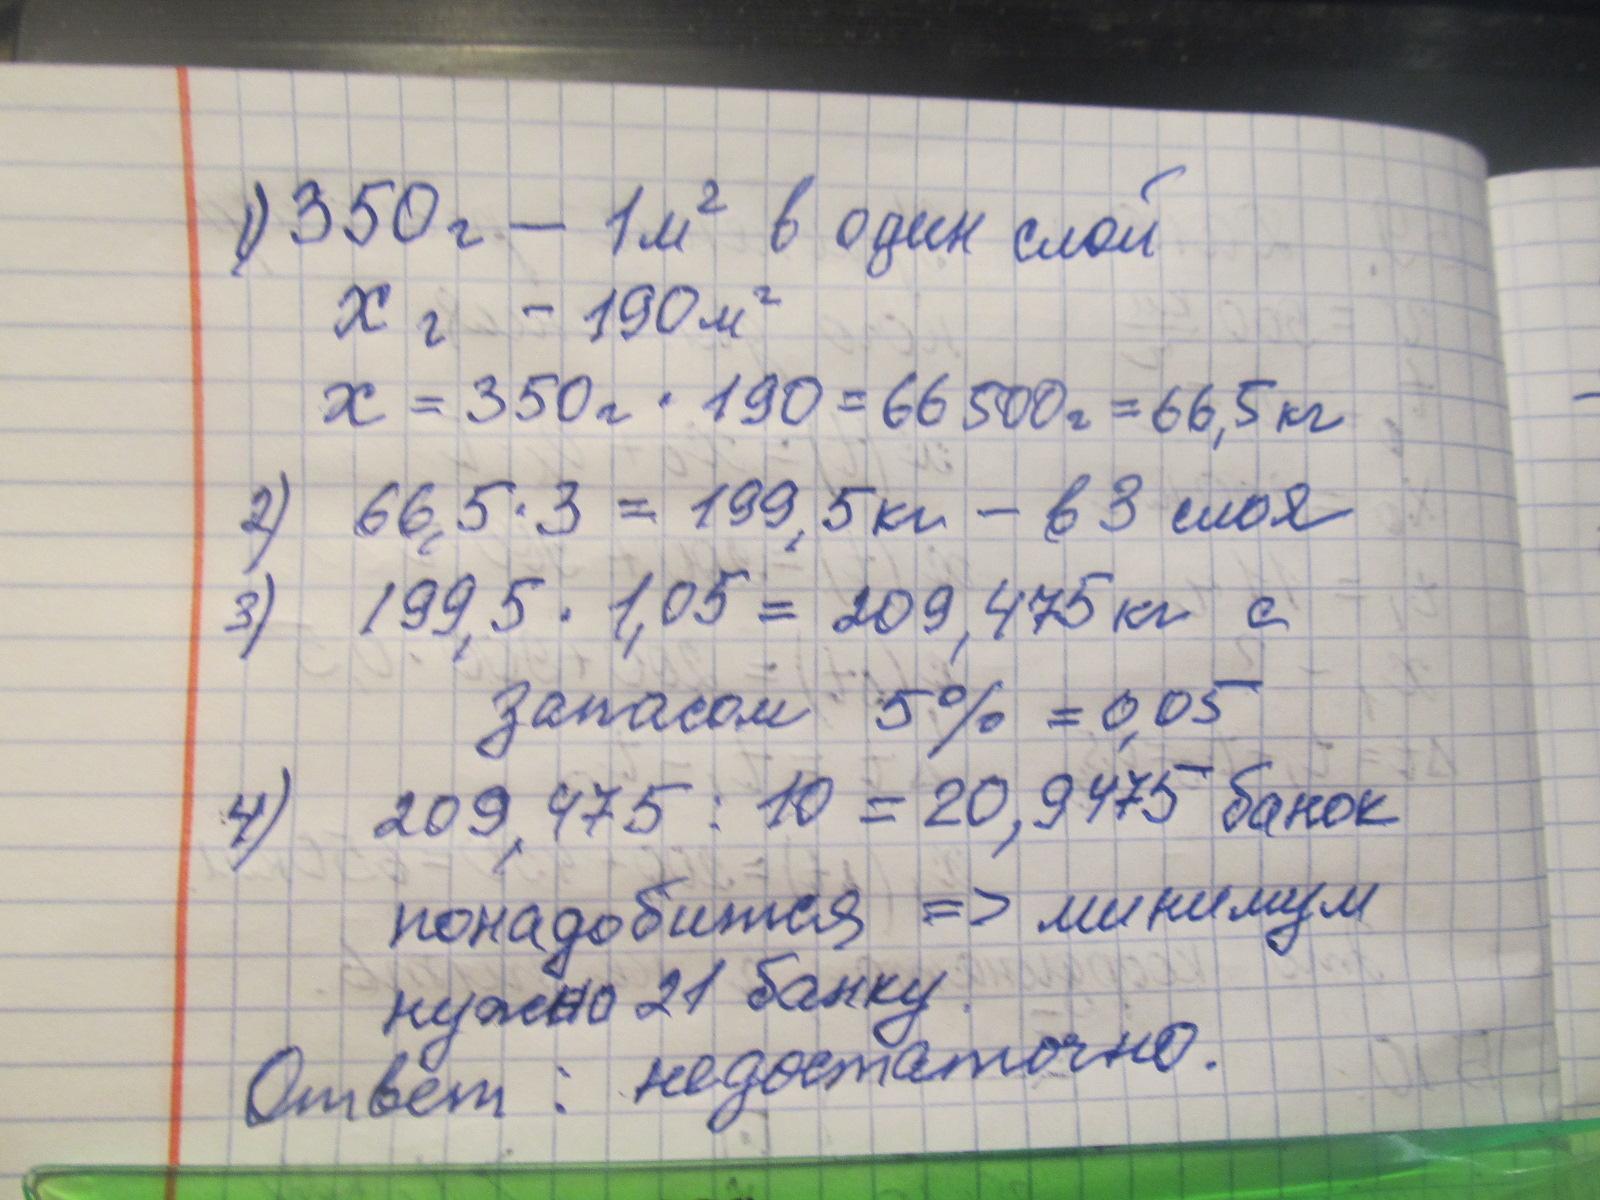 1) 350г — 1м² в один слой
х г - 190м²
х = 350г · 190 = 66500г = 66,5 кг
2) 66,5 · 3 = 199,5 кг - в 3 слоя
3) 199,5 · 1,05 = 209,475 кг с
запасом 5% = 0,05
4) 209,475 : 10 = 20,9475 банок
понадобится => минимум
нужно 21 банку.
Ответ: недостаточно.